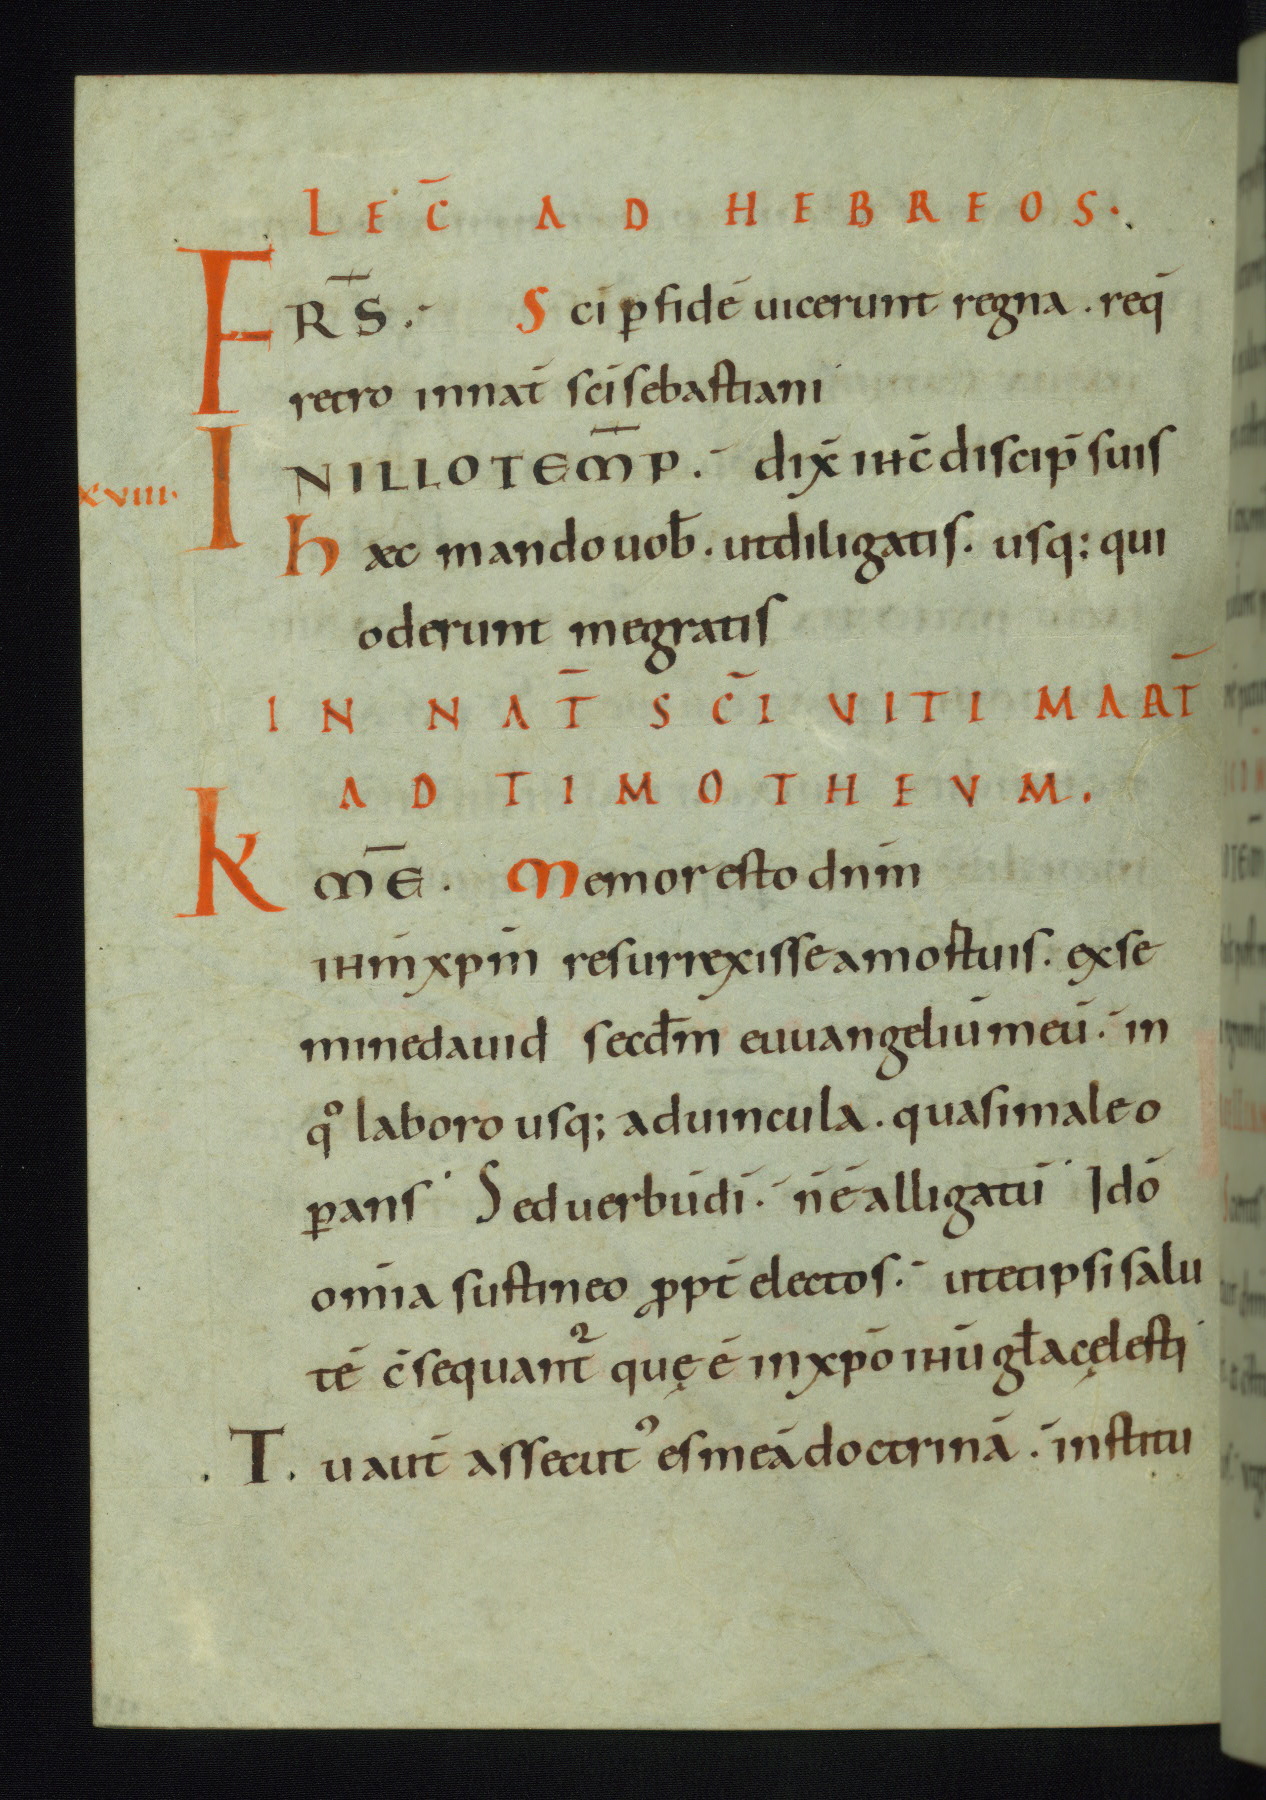 LEC̄ AD HEBREOS.
FRS̄. Sci ꝑ fidē uicerunt regna. req̄
retro in nat̄ sc̄i sebastiani
IN ILLO TEM̄P. dix̄ ihc̄ discip̄ suis
xviii.
haec mando uob̄. ut diligatis. usq; qui
oderunt me gratis
IN NAT̄ SC̄I VITI MART̄
AD TIMOTHEVM.
KM̄E. Memor esto dn̄m
ihm̄ xpm̄ resurrexisse a mortuis. ex se
mine dauid secd̄m euuangeliū meū. in
qͦ laboro usq; ad uincula. quasi male o
ꝑans Sed uerbū dī. n̄ ē alligatū Idō
om̄ia sustineo ꝓpt̄ electos. ut et ipsi salu
tē c̄sequant᷑ quę ē in xp̄o ihū gl̄a cęlesti
.T.u aut̄ assecutꝰ es meā doctrinā. institu